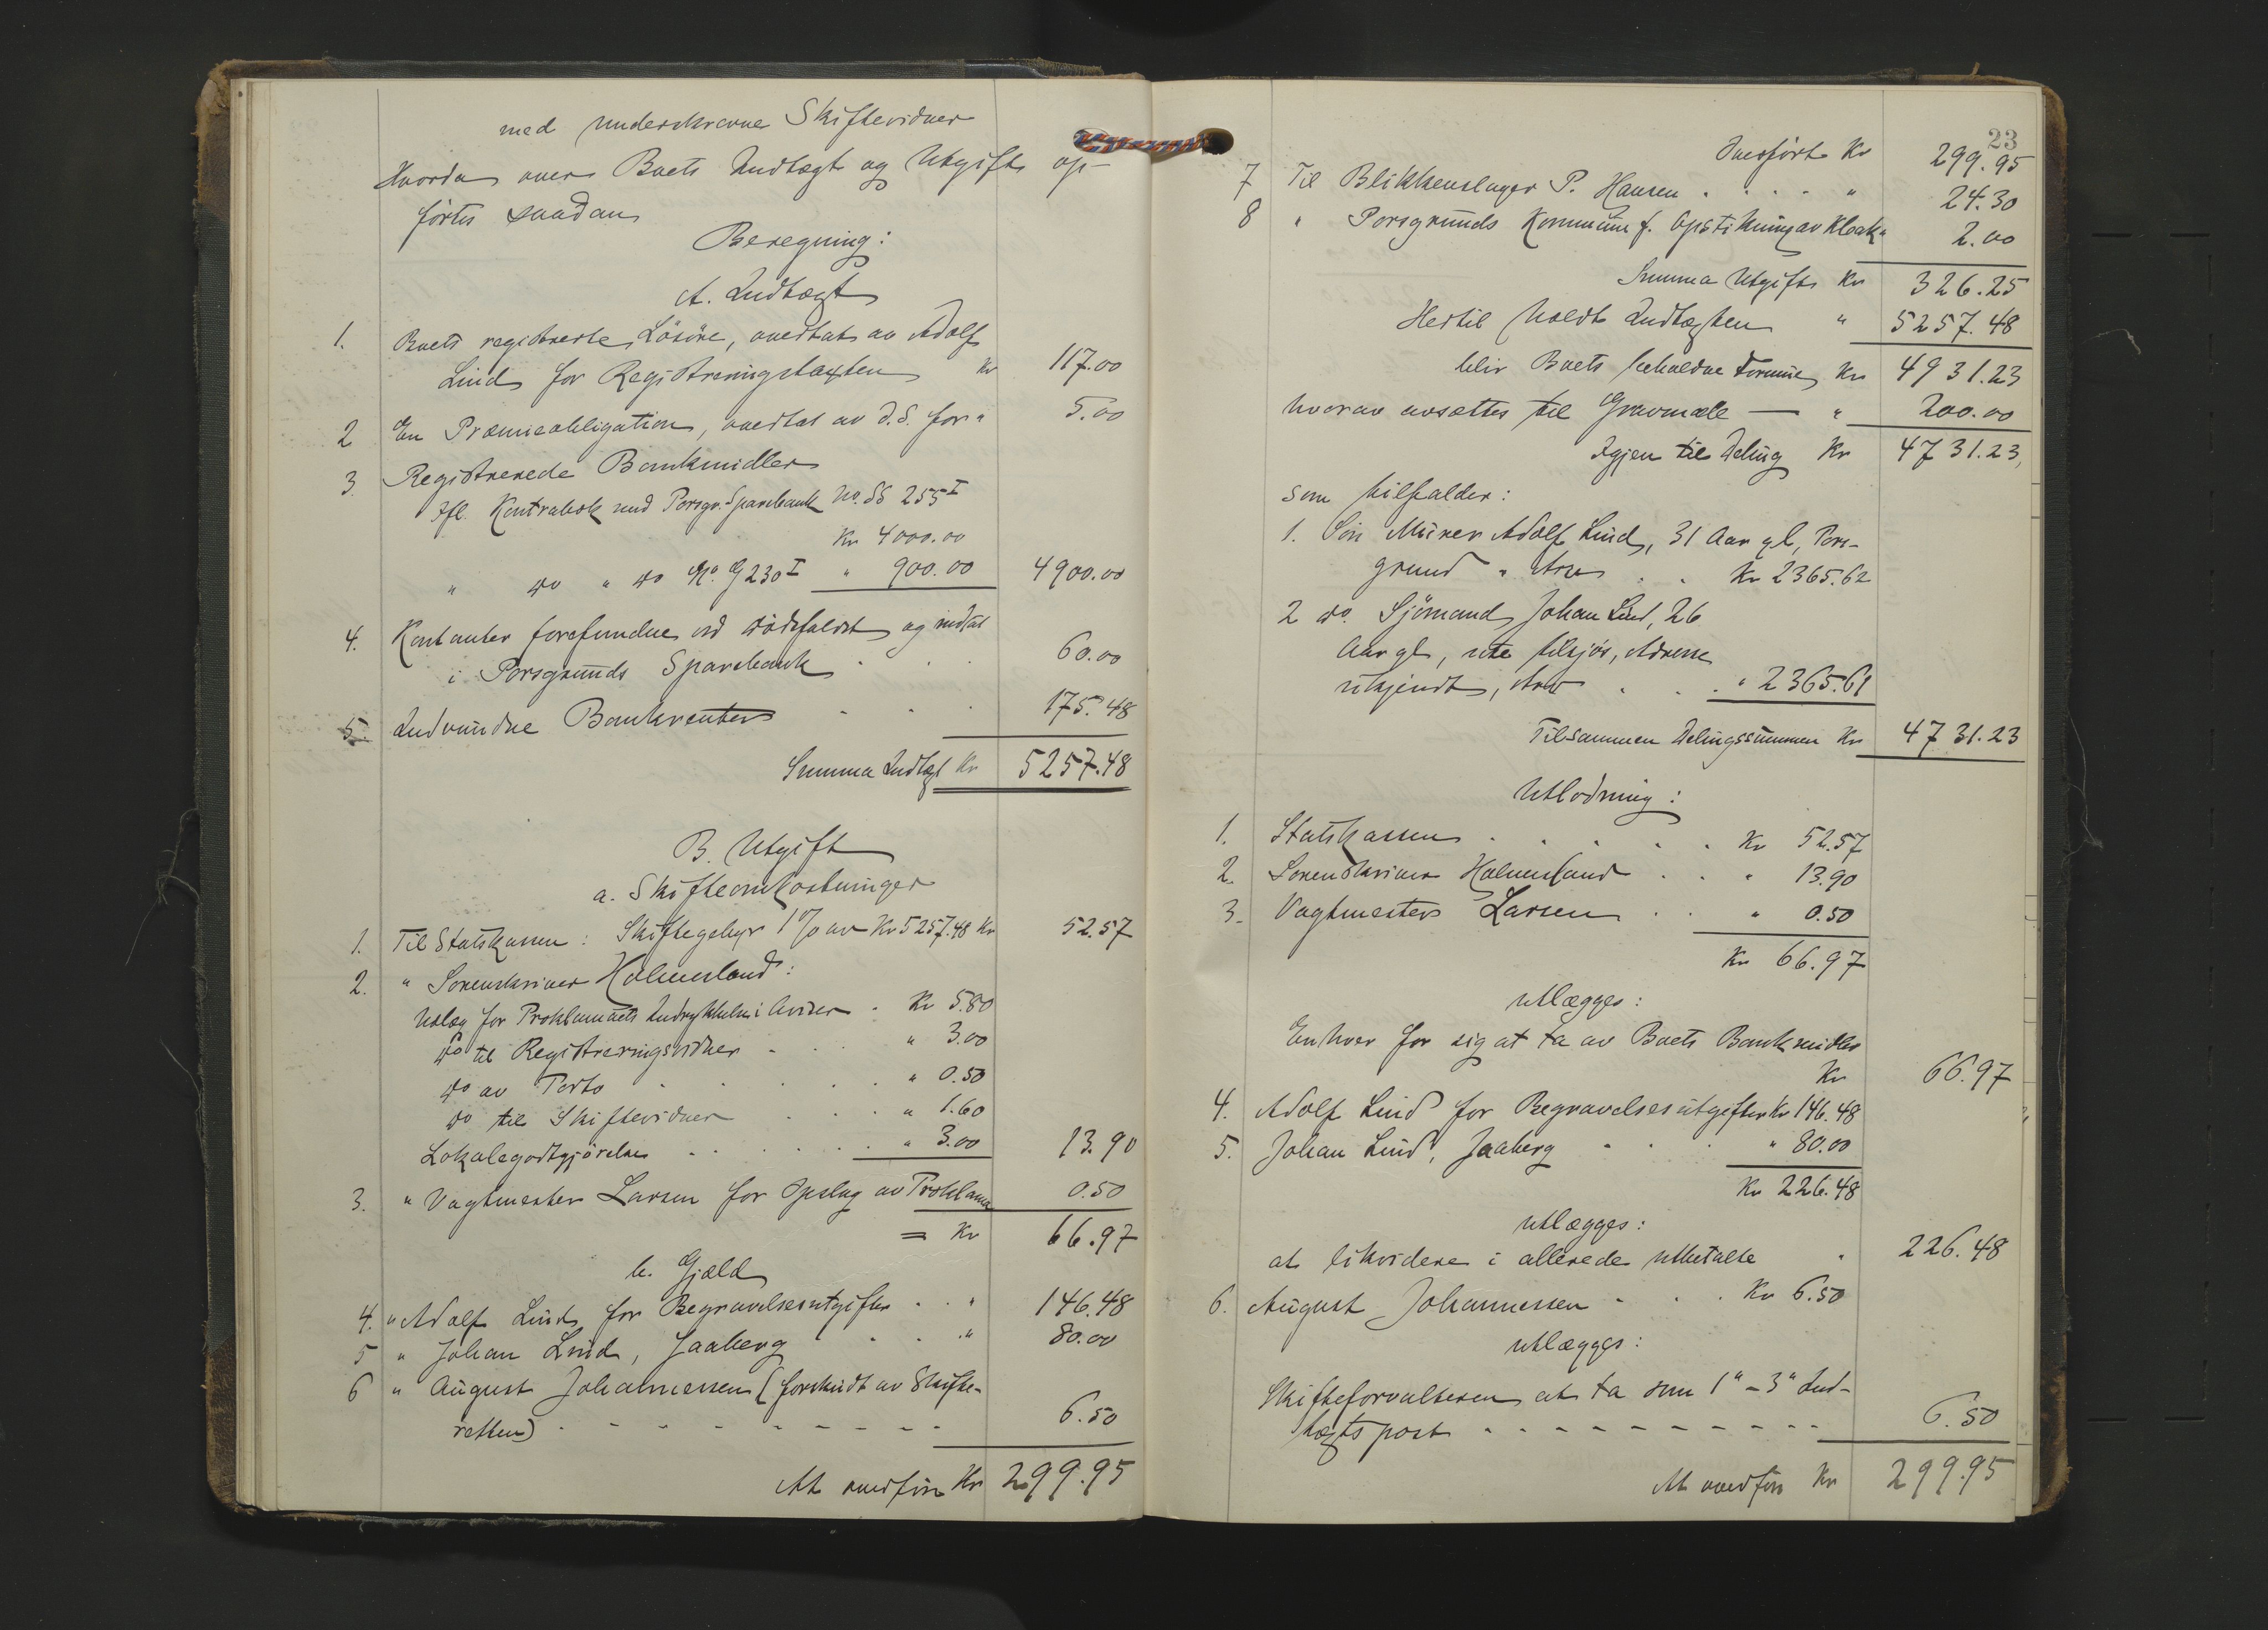 med underskrevne Skiftevidner
Hvorda over Boets Indtægt og Utgift op-
førtes saadan
Beregning:
A. Indtægt
1. Boets registrerte Lösöre, overtat av Adolf
Lind for Registreringstaxten Kr 117.00
2 En Præmieobligation, overtat av d.S. for " 5.00
3. Registrerede Bankmidler
Ifl. Kontrabok med Porsgr. Sparebank No. S6 255 I
Kr 4000.00
" do " do No. G 230 I " 900.00 4900.00
4. Kontanter forefundne ved Dødsfaldet og indsat
i Porsgrunds Sparebank . . . 60.00
5. Indvundne Bankrenter - - . 175.48
Summa Indtægt Kr 5257.48
B. Utgift
a. Skifteomkostninger
1. Til Statskassen: Skiftegebyr 1% av Kr 5257.48 Kr 52.57
2. " Sorenskriver Holmesland:
Utlæg for Proklamaets Indrykkelse i Aviser . Kr 5.80
do til Registreringsvidner - . . " 3.00
do av Porto . . . . " 0.50
do til Skiftevidner . . . " 1.60
Lokalegodtgjörelse . . . . . " 3.00 13.90
3. " Vagtmester Larsen for Opslag av Proklama 0.50
= Kr 66.97
b. Gjæld
4. " Adolf Lind for Begravelsesutgifter . . " 146.48
5 " Johan Lind, Jaaberg - . . " 80.00
6 " August Johannessen (forskudt av Skifte-
retten) - - - - - - - - 6.50
At overföre Kr 299.95
23
Overført Kr 299.95
7 Til Blikkenslager P. Hansen . . . . " 24.30
8 " Porsgrunds Kommune f. Opstikning av Kloak " 2.00
Summa Utgift Kr 326.25
Hertil holdt Indtægten " 5257.48
blir Boets beholdne Formue Kr 4931.23
hvorav avsættes til Gravmæle — " 200.00
Igjen til Deling Kr 4731.23,
som tilfalder:
1. Sön Murer Adolf Lind, 31 Aar gl, Pors-
grund " Arv . . Kr 2365.62
2 do. Sjömand Johan Lind, 26
Aar gl, ute tilsjös, Adresse
ukjendt, Arv . . . " 2365.61
Tilsammen Delingssummen Kr 4731.23
Utlodning:
1. Statskassen . . . . . Kr 52.57
2. Sorenskriver Holmesland . . " 13.90
3. Vagtmester Larsen . . " 0.50
Kr 66.97
utlægges:
Enhver for sig at ta av Boets Bankmidler
Kr 66.97
4. Adolf Lind for Begravelsesutgifter Kr 146.48
5. Johan Lind, Jaaberg - . . " 80.00
Kr 226.48
utlægges:
at likvidere i allerede utbetalte " 226.48
6. August Johannessen - . . Kr 6.50
utlægges:
Skifteforvalteren at ta som 1" - 3" Ind-
tægtspost - - - - - - - - - - 6.50
At overföre Kr 299.95